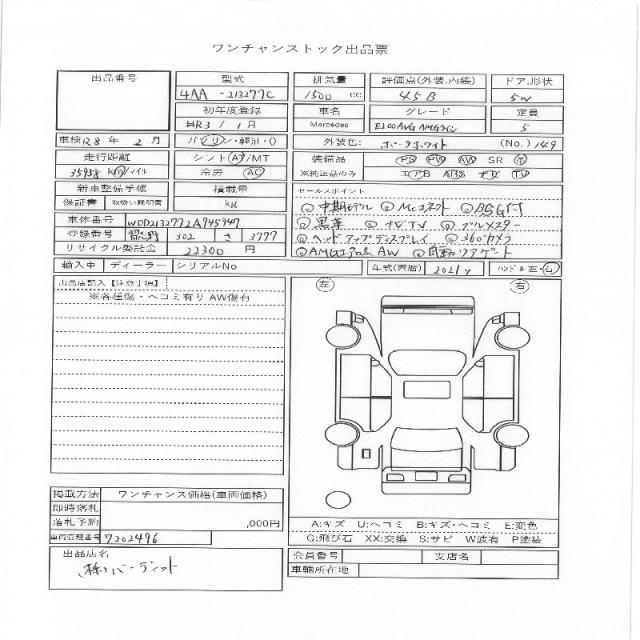 ワンチャンストック出品票
出品番号 型式 排気量 評価点(外装.内装) ドア.形状
4AA -213277C 1500 cc 4.5 B 5W
初年度登録 車名 グレード 定員
R3 / 1 月 Mercedes E200AVG 5
車検 R8 年 2 月 ガソリン・軽油・() 外装色: ポーラホワイト (No.) 149
走行距離 シフト(AT/MT 装備品 PS PW AW SR
35958 Km/マイル 冷房 AC ※純正品のみ エアB ABS ナビ TV
新車整備手帳 積載量 セールスポイント
保証書 取扱い説明書 kg 中期モデル Mcコネクト BSG付
車体番号 W1DD2132772A945947 黒革 ナビTV ブルメスター
登録番号 302 さ 3777 ヘッドアップディスプレイ 360°カメラ
リサイクル委託金 22300 円 AMG AW 自動リアゲート
輸入中 ディーラー シリアルNo 年式(西暦) 2021 y ハンドル 左・右
出品店記入【注意事項】 左 右
※各種傷・ヘコミ有り AW傷付
掲載方法 ワンチャンス価格(車両価格)
即時落札
落札予約 ,000円
車両管理番号 7202496
A:キズ U:ヘコミ B:キズ・ヘコミ E:変色
G:飛び石 XX:交換 S:サビ W波有 P塗装
出品店名 会員番号 支店名
㈱バーディット 車輌所在地